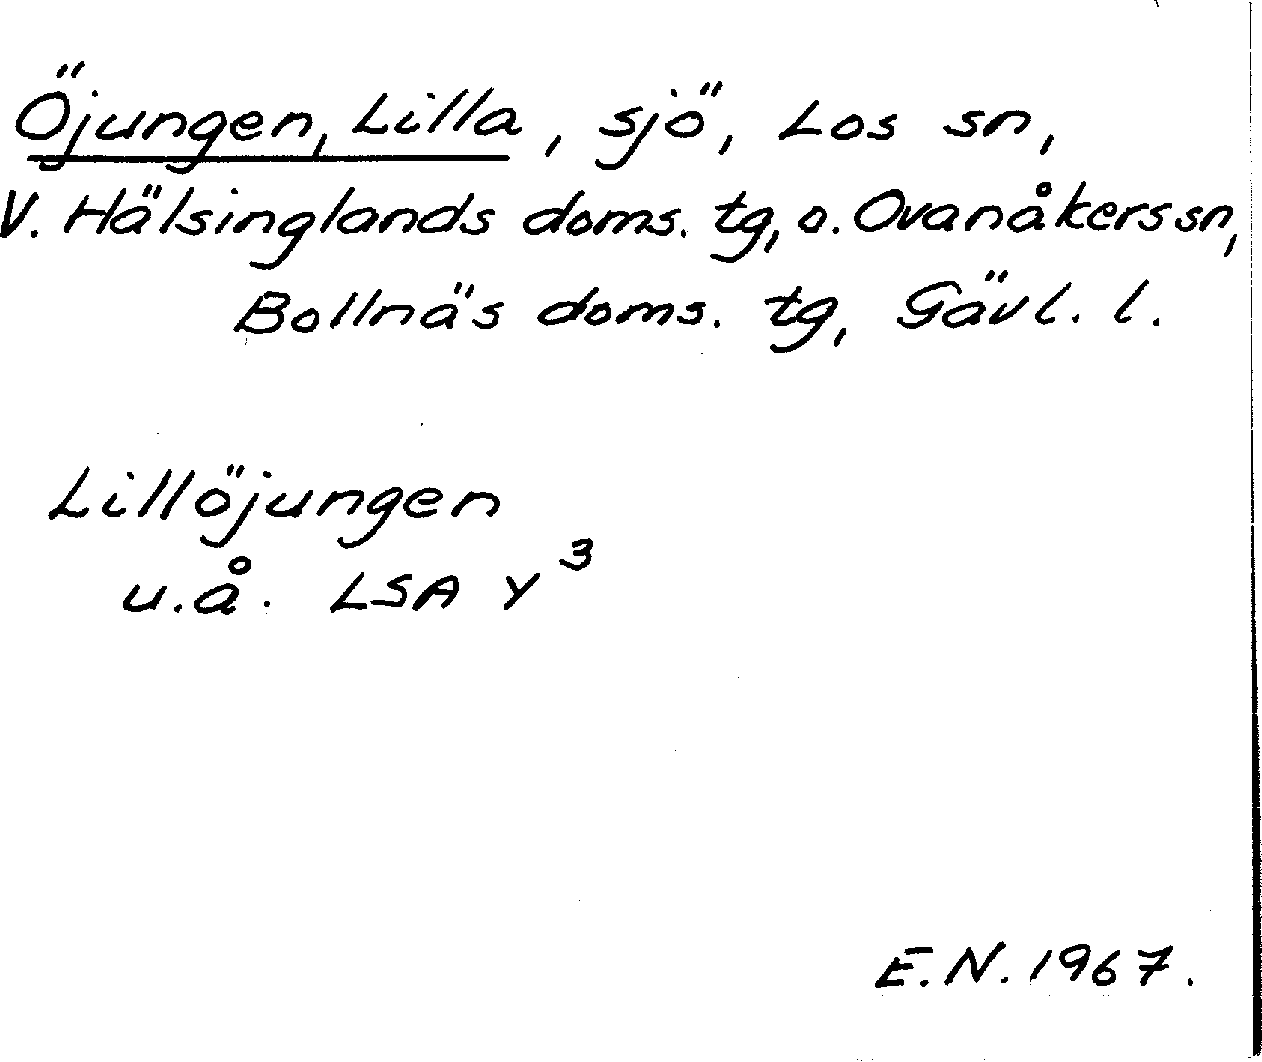 Öjungen, Lilla, sjö, Los sn,
V. Hälsinglands doms. tg, o. Ovanåkers sn,
Bollnäs doms. tg, Gävl. l.
Lillöjungen
u.å. LSA Y³
E.N. 1967.